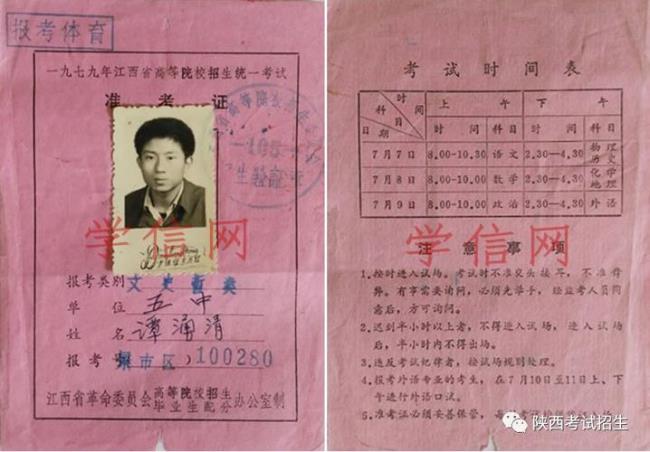 报考体育
一九七九年江西省高等院校招生统一考试
准考证
学信网
报考类别 文史哲类
单位 五中
姓名 谭涌清
报考号 (市区)100280
江西省革命委员会高等院校招生毕业生分配办公室制
考试时间表
时间 科目 日期 上午 下午
时间 科目 时间 科目
7月7日 8.00-10.30 语文 2.30—4.30 物理 历史
7月8日 8.00-10.00 数学 2.30—4.30 化学 地理
7月9日 8.00-10.00 政治 2.30—4.30 外语
学信网
注意事项
1.按时进入试场。考试时不准交头接耳,不准舞
弊。有事需要询问,必须先举手,经监考人员同
意后,方可询问。
2.迟到半小时以上者,不得进入试场,进入试场
后,半小时内不得出场。
3.违反考试纪律者,按试场规则处理。
4.报考外语专业的考生,在7月10日至11日上、下
午进行外语口试。
5.准考证必须妥善保管,
陕西考试招生